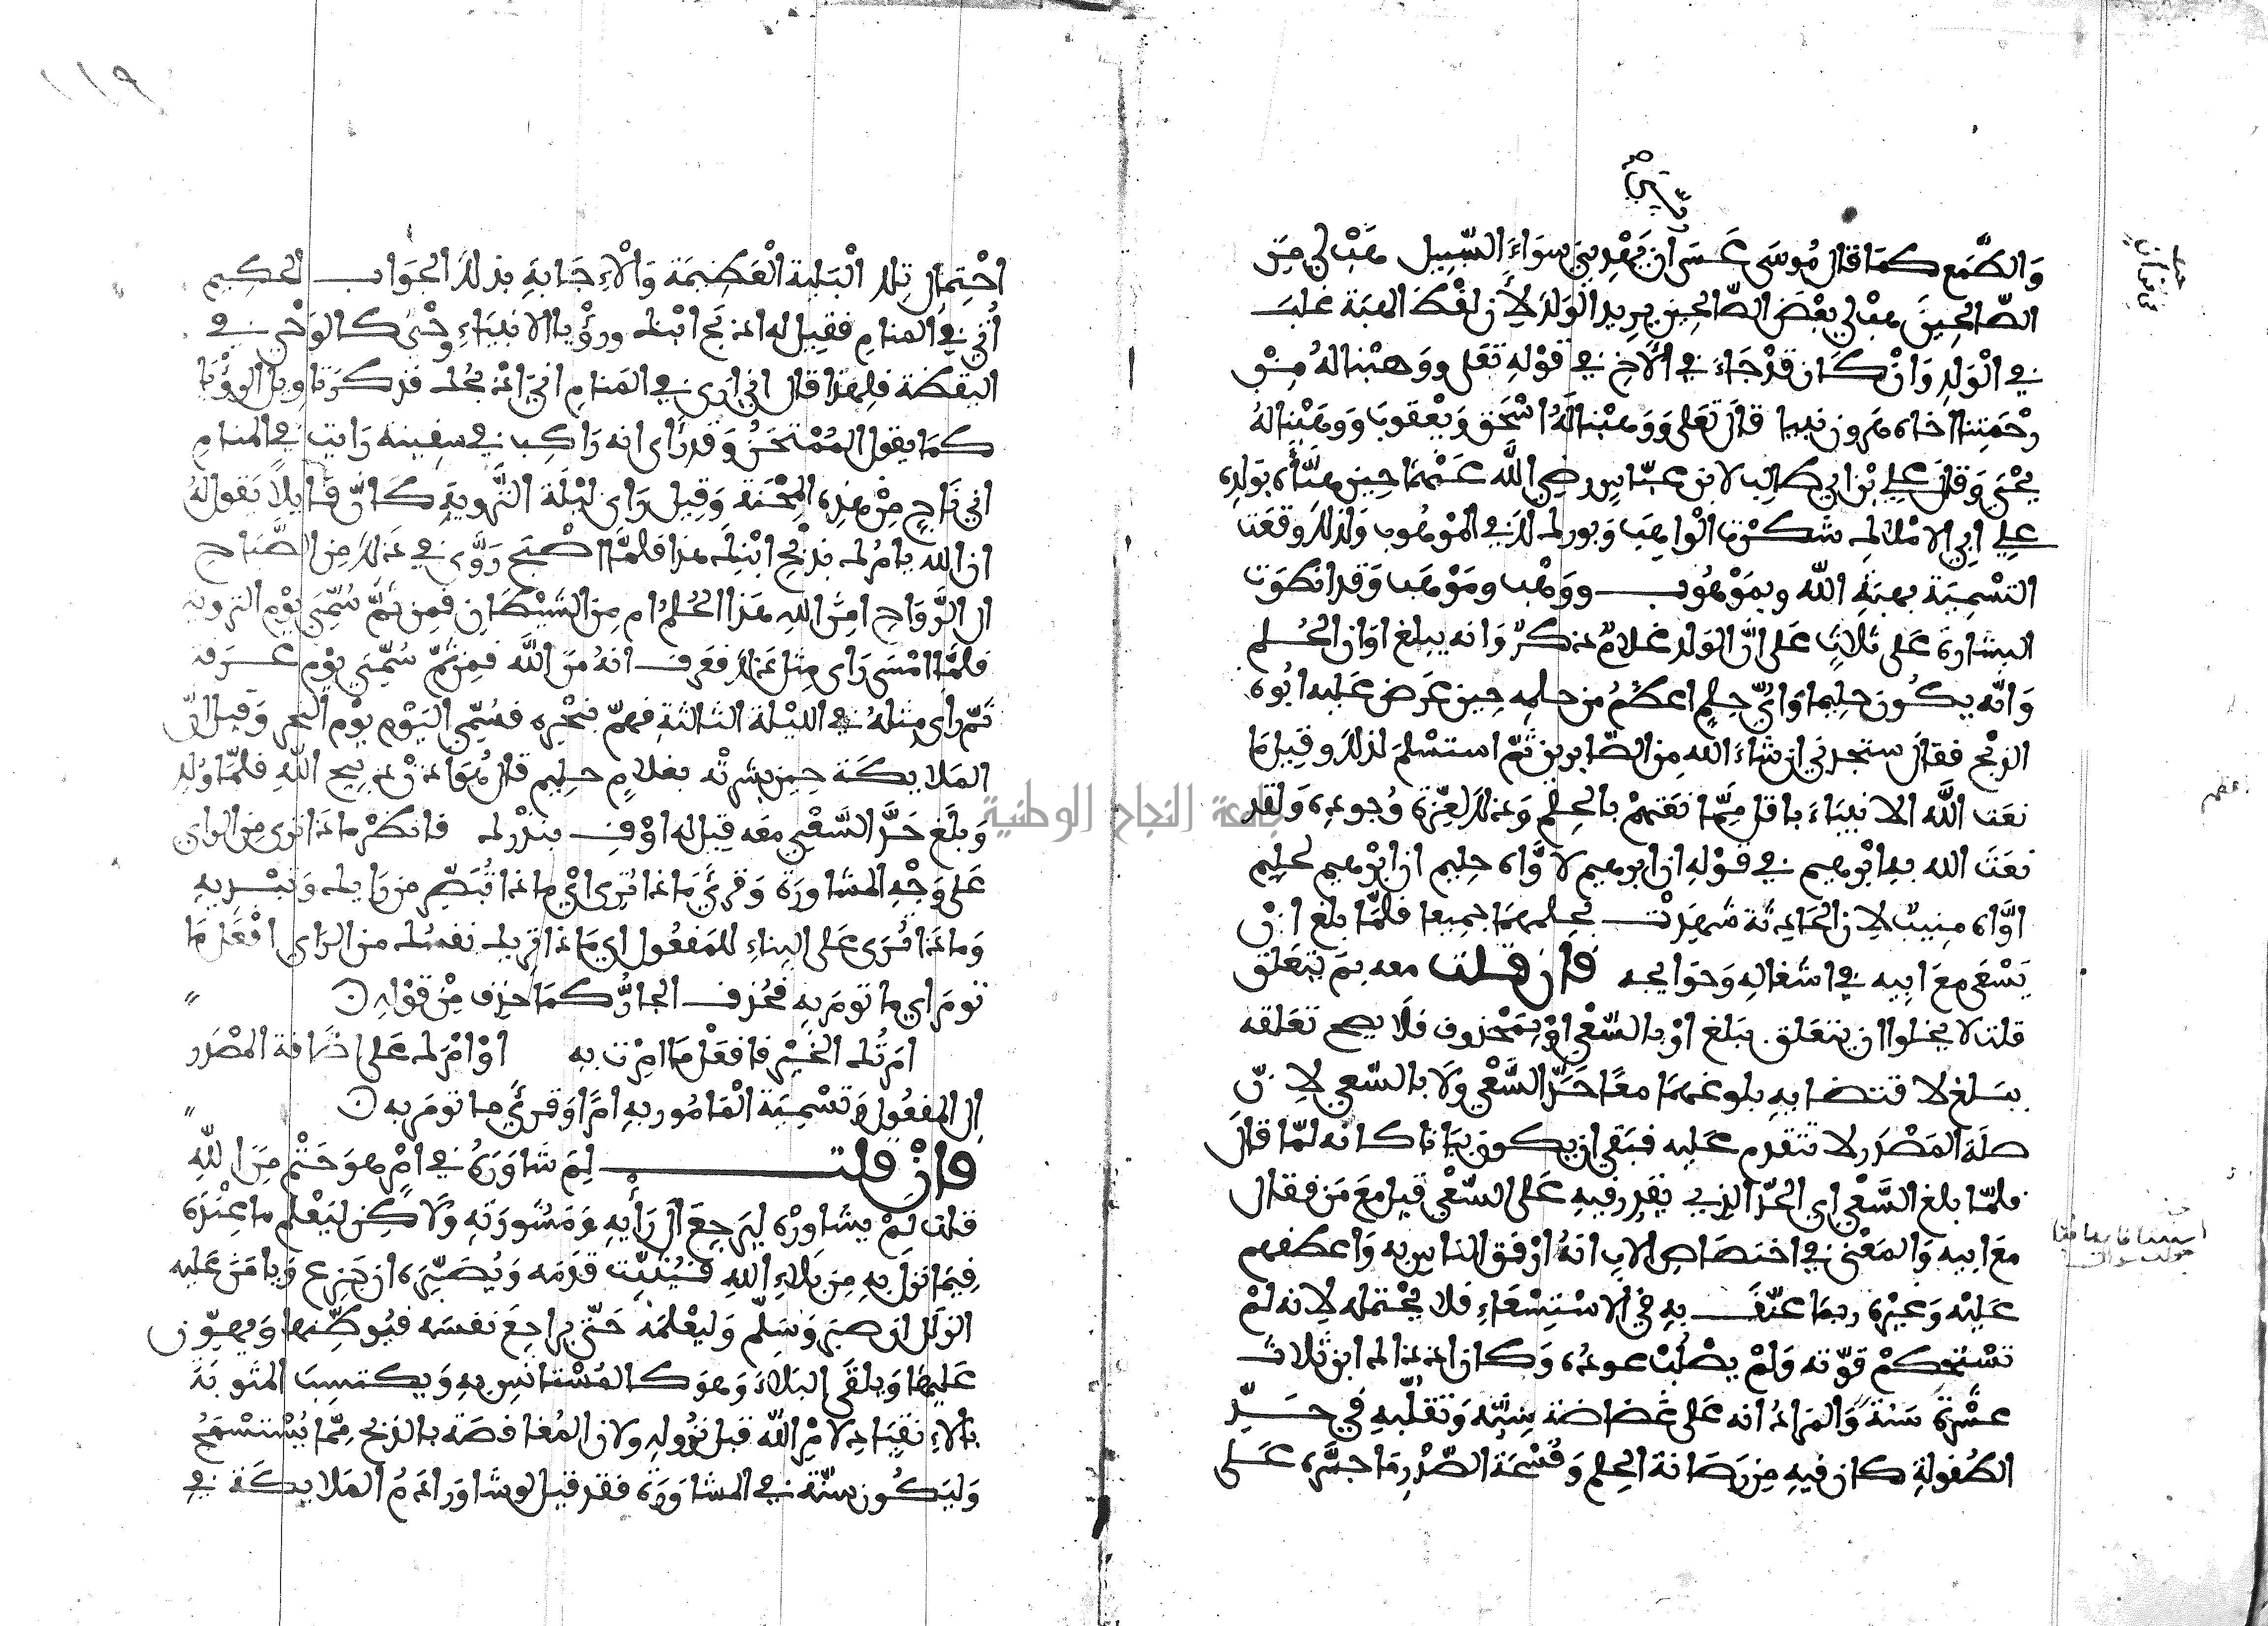 والطمع كما قال موسى عسى ان يهديني سواء السبيل هب لي من
الصالحين هب لي بعض الصالحين يريد الولد لان لفظ الهبة غلب
في الولد وان كان قد جاء في الاخ في قوله تعلى ووهبنا له من
رحمتنا اخاه هرون نبيا قال تعلى ووهبنا له اسحق ويعقوب ووهبنا له
يحيى وقال علي بن ابي طالب لابن عباس رضي الله عنهما حين هنأه بولده
علي ابي الاملاك شكرت الواهب وبورك لك في الموهوب ولذلك وقعت
التسمية بهبة الله وبموهوب ووهب وموهب وقد انطوت
البشارة على ثلاث على ان الولد غلام ذكر وانه يبلغ اوان الحلم
وانه يكون حليما واي حلم اعظم من حلمه حين عرض عليه ابوه
الذبح فقال ستجدني ان شاء الله من الصابرين ثم استسلم لذلك وقيل ما
نعت الله الانبياء باقل مما نعتهم بالحلم وذلك لعزة وجوده ولقد
نعت الله به ابرهيم في قوله ان ابرهيم لاواه حليم ان ابرهيم لحليم
اواه منيب لان الحادثة شهدت بحلمهما جميعا فلما بلغ ان
يسعى مع ابيه في اشغاله وحوايجه فان قلت معه بم يتعلق
قلت لا يخلوا ان يتعلق ببلغ او بالسعي او بمحذوف فلا يصح تعلقه
ببلغ لاقتضايه بلوغهما معا حد السعي ولا بالسعي لان
صلة المصدر لا تتقدم عليه فبقي ان يكون بيانا كانه لما قال
فلما بلغ السعي اي الحد الذي يقدر فيه على السعي قيل مع من فقال
مع ابيه والمعنى في اختصاص الاب انه ارفق الناس به واعطفهم
عليه وغيره ربما عنف به في الاستسعاء فلا يحتمله لانه لم
تستحكم قوته ولم يصلب عوده وكان اذ ذاك ابن ثلاث
عشرة سنة والمراد انه على غضاضة سنه وتقلبه في حد
الطفولة كان فيه من رصانة الحلم وفسحة الصدر ما جسره على
١١٩
احتمال تلك البلية العظيمة والاجابة بذلك الجواب الحكيم
أتي في المنام فقيل له اذبح ابنك ورؤيا الانبياء وحي كالوحي في
اليقظة فلهذا قال اني ارى في المنام اني اذبحك فذكر تاويل الرؤيا
كما يقول الممتحن وقد رأى انه راكب في سفينة رايت في المنام
اني ناج من هذه المحنة وقيل راى ليلة التروية كان قايلا يقول له
ان الله يامرك بذبح ابنك هذا فلما اصبح روى في ذلك من الصباح
الى الرواح امن الله هذا الحلم ام من الشيطان فمن ثم سمي يوم التروية
فلما امسى راى مثل ذلك فعرف انه من الله فمن ثم سمي يوم عرفة
ثم راى مثله في الليلة الثالثة فهم بنحره فسمي اليوم يوم النحر وقيل ان
الملايكة حين بشرته بغلام حليم قال هو اذن ذبيح الله فلما ولد
وبلغ حد السعي معه قيل له اوف بنذرك فانظر ماذا ترى من الراي
على وجه المشاورة وقرئ ماذا تري اي ماذا تبصر من رايك وتبديه
وماذا ترى على البناء للمفعول اي ماذا تريك نفسك من الراي افعل ما
تومر اي ما تومر به فحذف الجار كما حذف من قوله
امرتك الخير فافعل ما امرت به او امرك على اضافة المصدر
الى المفعول وتسمية المامور به امرا وقرئ ما تومر به
فان قلت لم شاوره في امر هو حتم من الله
قلت لم يشاوره ليرجع الى رأيه ومشورته ولاكن ليعلم ما عنده
فيما نزل به من بلاء الله فيثبت قدمه ويصبره ان جزع ويامن عليه
الزلل ان صبر وسلم وليعلمه حتى يراجع نفسه فيوطنها ويهون
عليها ويلقى البلاء وهو كالمستانس به ويكتسب المثوبة
بالانقياد لامر الله قبل نزوله ولان المغافصة بالذبح مما يستسمج
وليكون سنة في المشاورة فقد قيل لو شاور ادم الملايكة في
جامعة النجاح الوطنية